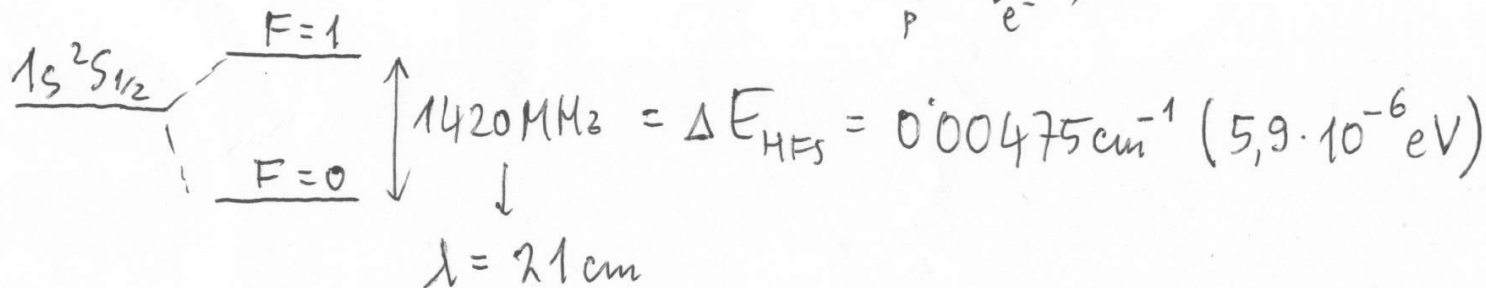 p e⁻
F=1
1s ²S₁/₂
1420 MHz = ΔE_HFS = 0'00475 cm⁻¹ (5,9·10⁻⁶ eV)
F=0
↓
λ = 21 cm